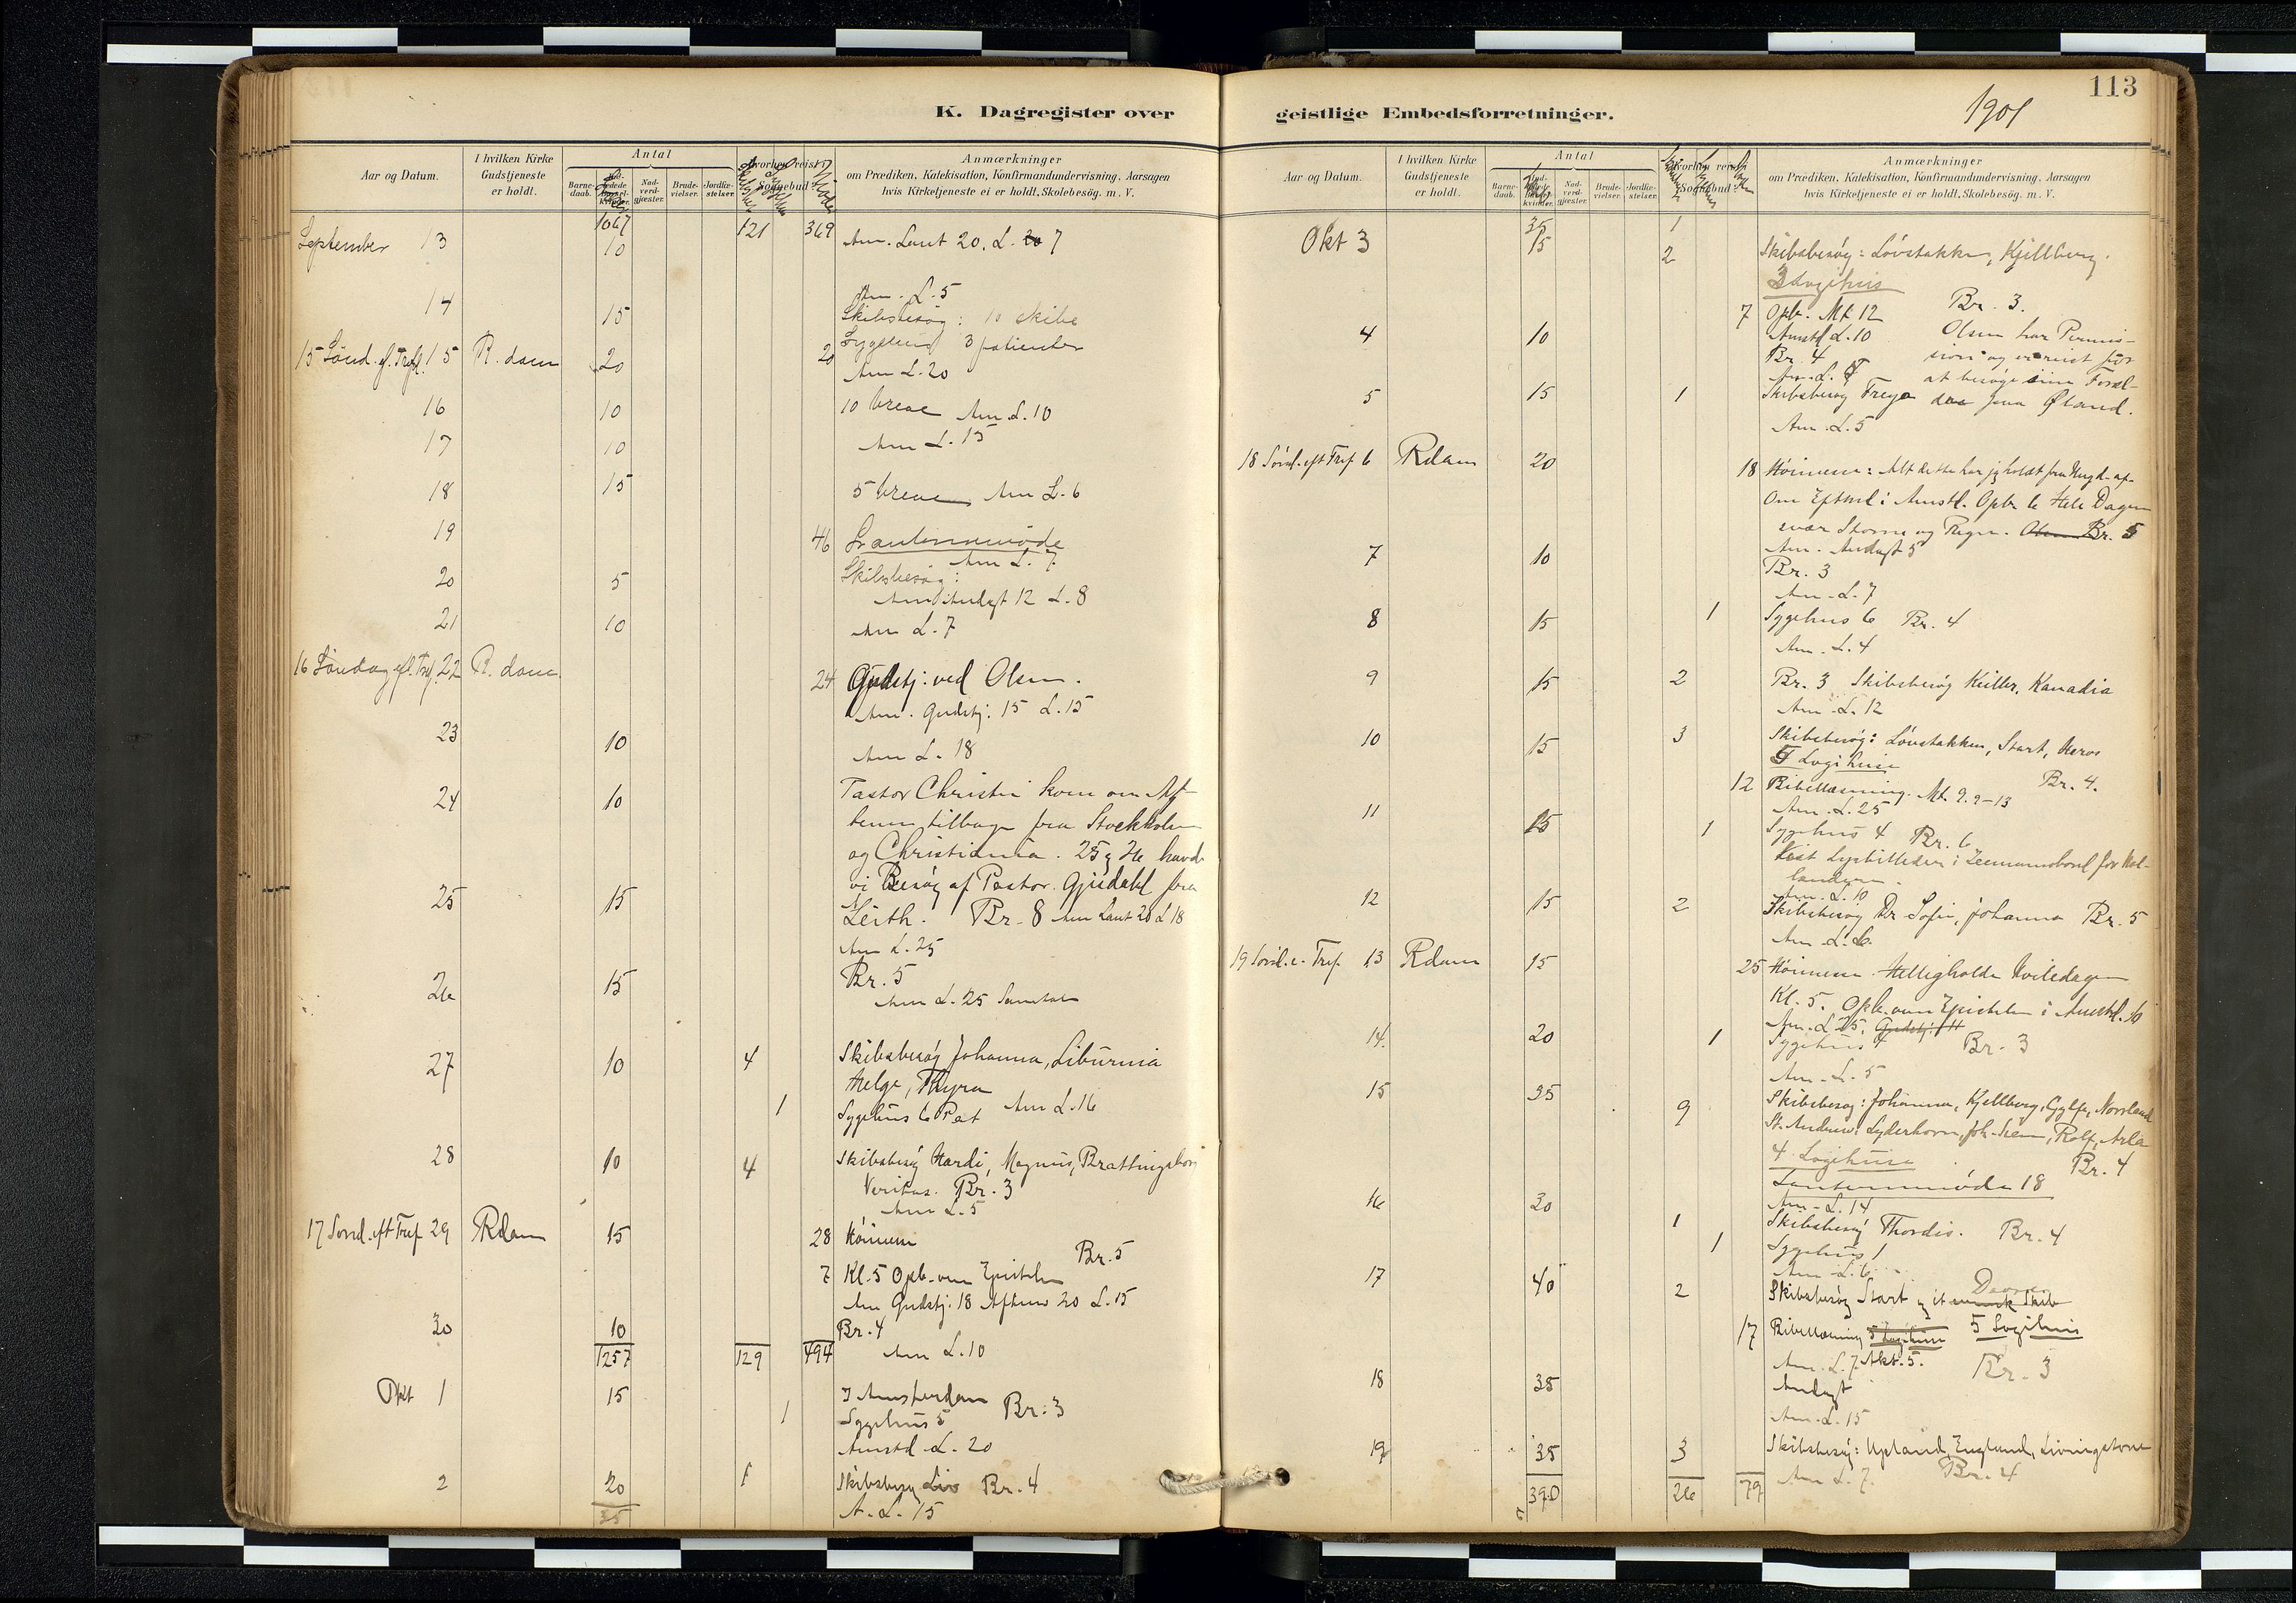 113
1901
K. Dagregister over geistlige Embedsforretninger.
Aar og Datum.
I hvilken Kirke Gudstjeneste er holdt.
Antal
Barnedaab.
Nadverdgjæster.
Brudevielser.
Jordfæstelser.
Hvorhen reist i Sognebud?
Anmærkninger
om Prædiken, Katekisation, Konfirmandundervisning, Aarsagen
hvis Kirketjeneste ei er holdt, Skolebesög. m. V.
1067 121 369
September 13 10 Am. Lant 20. L. 7
14 15 Am. L. 5
Skibsbesög: 10 skibe
Sygehus 3 patienter
15 Sönd. ef. Tref. 15 R.dam 20 20 Am L. 20
16 10 10 breve Am L. 10
17 10 Am L. 15
18 15 5 breve Am L. 6
19 46
Am L. 7
20 5 Skibsbesög:
Am Andagt 12 L. 8
21 10 Am L. 7
16 Söndag ef. Tref. 22 R.dam 24 Gudstj: ved Olsen.
Am. Gudstj. 15 L. 15
23 10 Am L. 18
24 10 Pastor Christie kom om Aftenen tilbage fra Stockholm
og Christiania. 25 og 26 havde
vi Besög af Pastor Gjisdahl fra
25 15 Leith. Br. 8 Am Lant 28 L 18
Am L. 25
26 15 Br. 5
Am L. 25
27 10 4 Skibsbesög Johanna, Liburnia
Helge, Thyra
1 Sygehus 6 Pat Am L. 16
28 10 4 Skibsbesög Hardi, Magnus, Brattingsborg
Veritas. Br. 3
Am L. 5
17 Sönd. eft Tref 29 Rdam 15 28 Höimesse
Br. 5
7 Kl. 5 Opb. over Epistelen
Am Gudstj: 18 Aftenm 20 L. 15
30 10 Br. 4
1257 129 494 Am L. 10
Okt 1 15 I Amsterdam
1 Sygehus 5 Br. 3
Amstd. L. 20
2 20 1 Skibsbesög Liv Br. 4
35 A. L. 15
Aar og Datum.
I hvilken Kirke Gudstjeneste er holdt.
Antal
Barnedaab.
Nadverdgjæster.
Brudevielser.
Jordfæstelser.
Hvorhen reist i Sognebud?
Anmærkninger
om Prædiken, Katekisation, Konfirmandundervisning, Aarsagen
hvis Kirketjeneste ei er holdt, Skolebesög. m. V.
35 1
Okt 3 15 2 Skibsbesög: Lövstakken, Kjellberg.
3 Logihus
Br. 3.
7 Opb. Mt. 12
4 10 Amstd L. 10 Olsen har Permission og er reist for
Br. 4 at besöge sine Foræl-
5 15 1 Skibsbesög Freya dre paa Øland.
Am. L. 5
18 Sönd. eft Tref 6 Rdam 20 18 Höimesse: Alt dette har jeg holdt fra Ungd. af.
Om Eftmd i Amstd. Opb. 6 Hele Dagen
svær Storm og Regn. Br. 5
Am. Andagt 5
7 10 Br. 3
Am. L. 7
8 15 1 Sygehus 6 Br. 4
Am. L. 4
9 15 2 Br. 3 Skibsbesög Keiller, Kanadia
Am. L. 12
10 15 3 Skibsbesög: Lövstakken, Start, Heros
Logihuse
Br. 4.
12 Bibellæsning. Mt. 9. 9-13
Am. L. 25
11 15 1 Sygehus 4 Br. 6
Vist Lysbilleder i Zeemansbond for Hollændere.
Am. L. 10
12 15 2 Skibsbesög Dr. Sofie, Johanna Br. 5
Am. L. 6
19 Sönd. e. Tref. 13 Rdam 15 25 Höimesse. Helligholde Hviledagen
Kl. 5. Opb. over Epistelen i Amstd. 16
Am. L 25. Gudstj.
14. 20 1 Sygehus 4 Br. 3
Am. L. 5
15 35 9 Skibsbesög: Johanna, Kjellberg, Gylfe, Norrland
St. Andrew, Lyderhorn, Joh. Siem, Rolf, Arla
4 Logihuse Br. 4
18
Am. L. 14
16 30 1 Skibsbesög Thordis. Br. 4
1 Sygehus 1
Am. L. 6
17 40 2 Skibsbesög Start og et Skib
17 Bibellæsning 5 Logihus
Am. L. 7 Akt. 5.
Br. 3
18 35 Andagt
Am. L. 15
19 35 3 Skibsbesög: Upland, England, Livingstone
Am L. 7. Br. 4
390 26 79